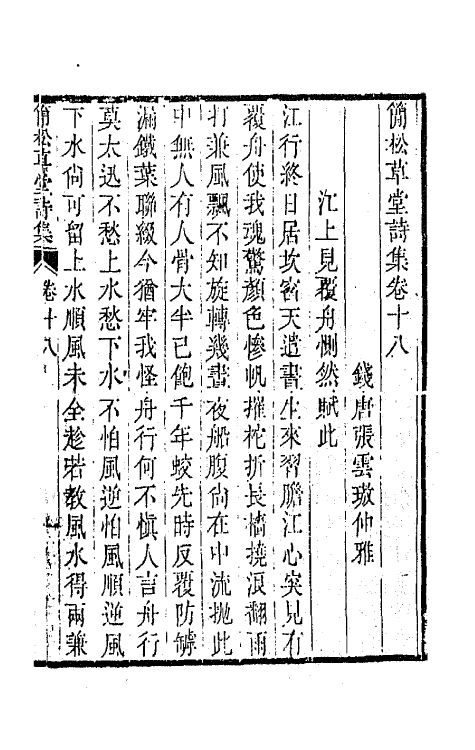 簡松草堂詩集卷十八
錢唐張雲璈仲雅
江上見覆舟惻然賦此
江行終日居坎窞天遣書生來習膽江心突見有
覆舟使我魂驚顏色慘帆摧柁折長檣撓浪翻雨
打兼風飄不知旋轉幾晝夜船腹尙在中流拋此
中無人有人骨大半已飽千年蛟先時反覆防罅
漏鐵葉聯綴今猶牢我怪舟行何不愼人言舟行
莫太迅不愁上水愁下水不怕風逆怕風順逆風
下水尙可留上水順風未全趁若敎風水得兩兼
簡松草堂詩集
卷十八